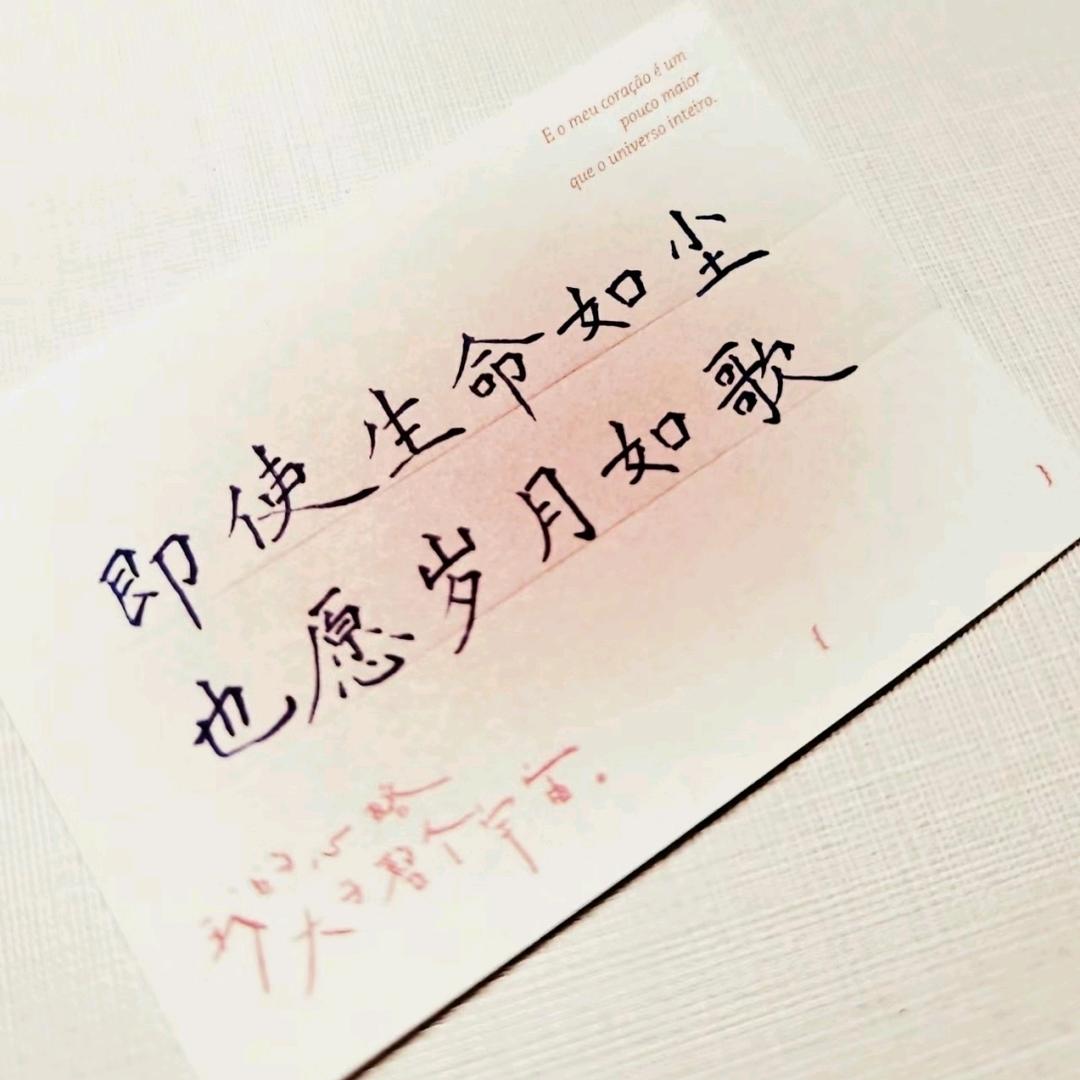 E o meu coração é um
pouco maior
que o universo inteiro.
即使生命如尘
也愿岁月如歌
我的心略
大于整个宇宙.